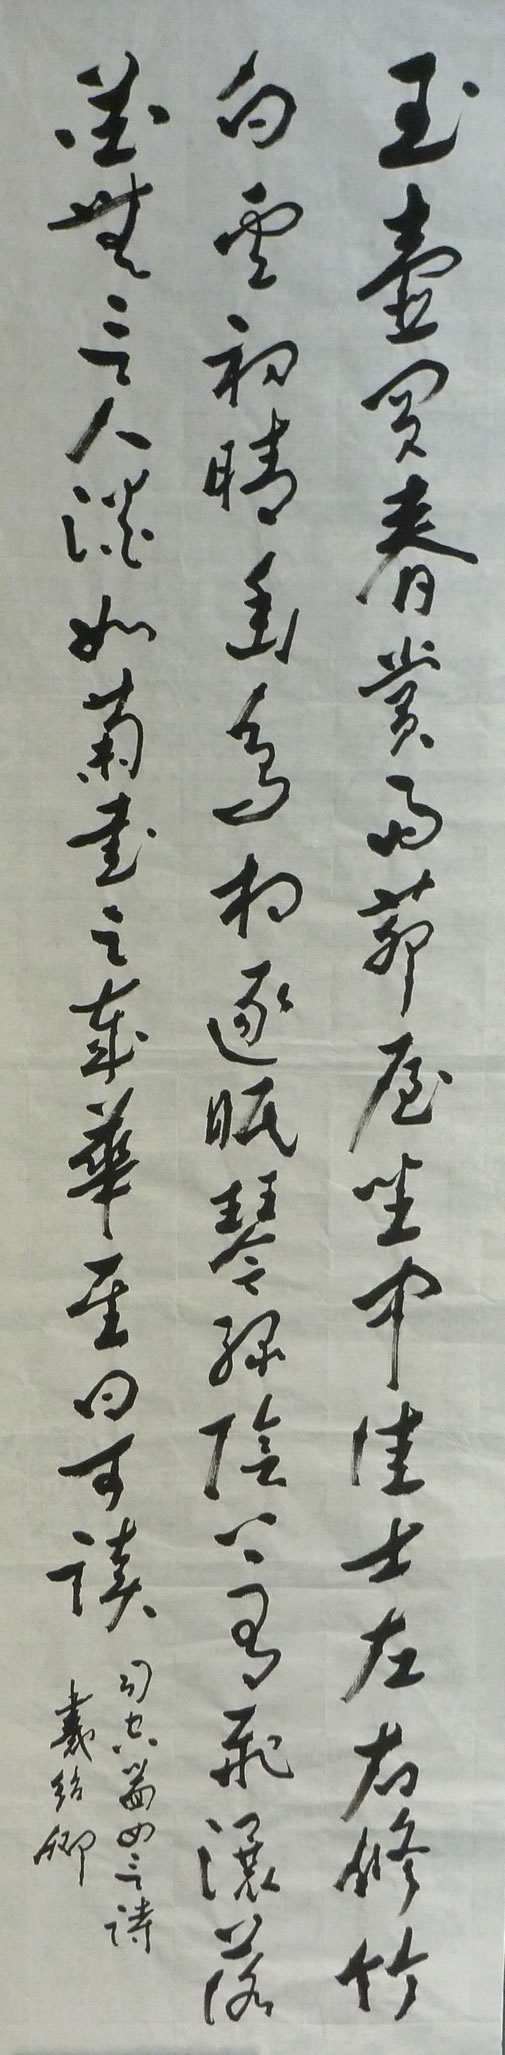 玉壺買春賞雨茆屋坐中佳士左右修竹
白雲初晴幽鳥相逐眠琴綠陰上有飛瀑落
花無言人淡如菊書之歲華其曰可讀
司空圖四言詩
戴紹卿